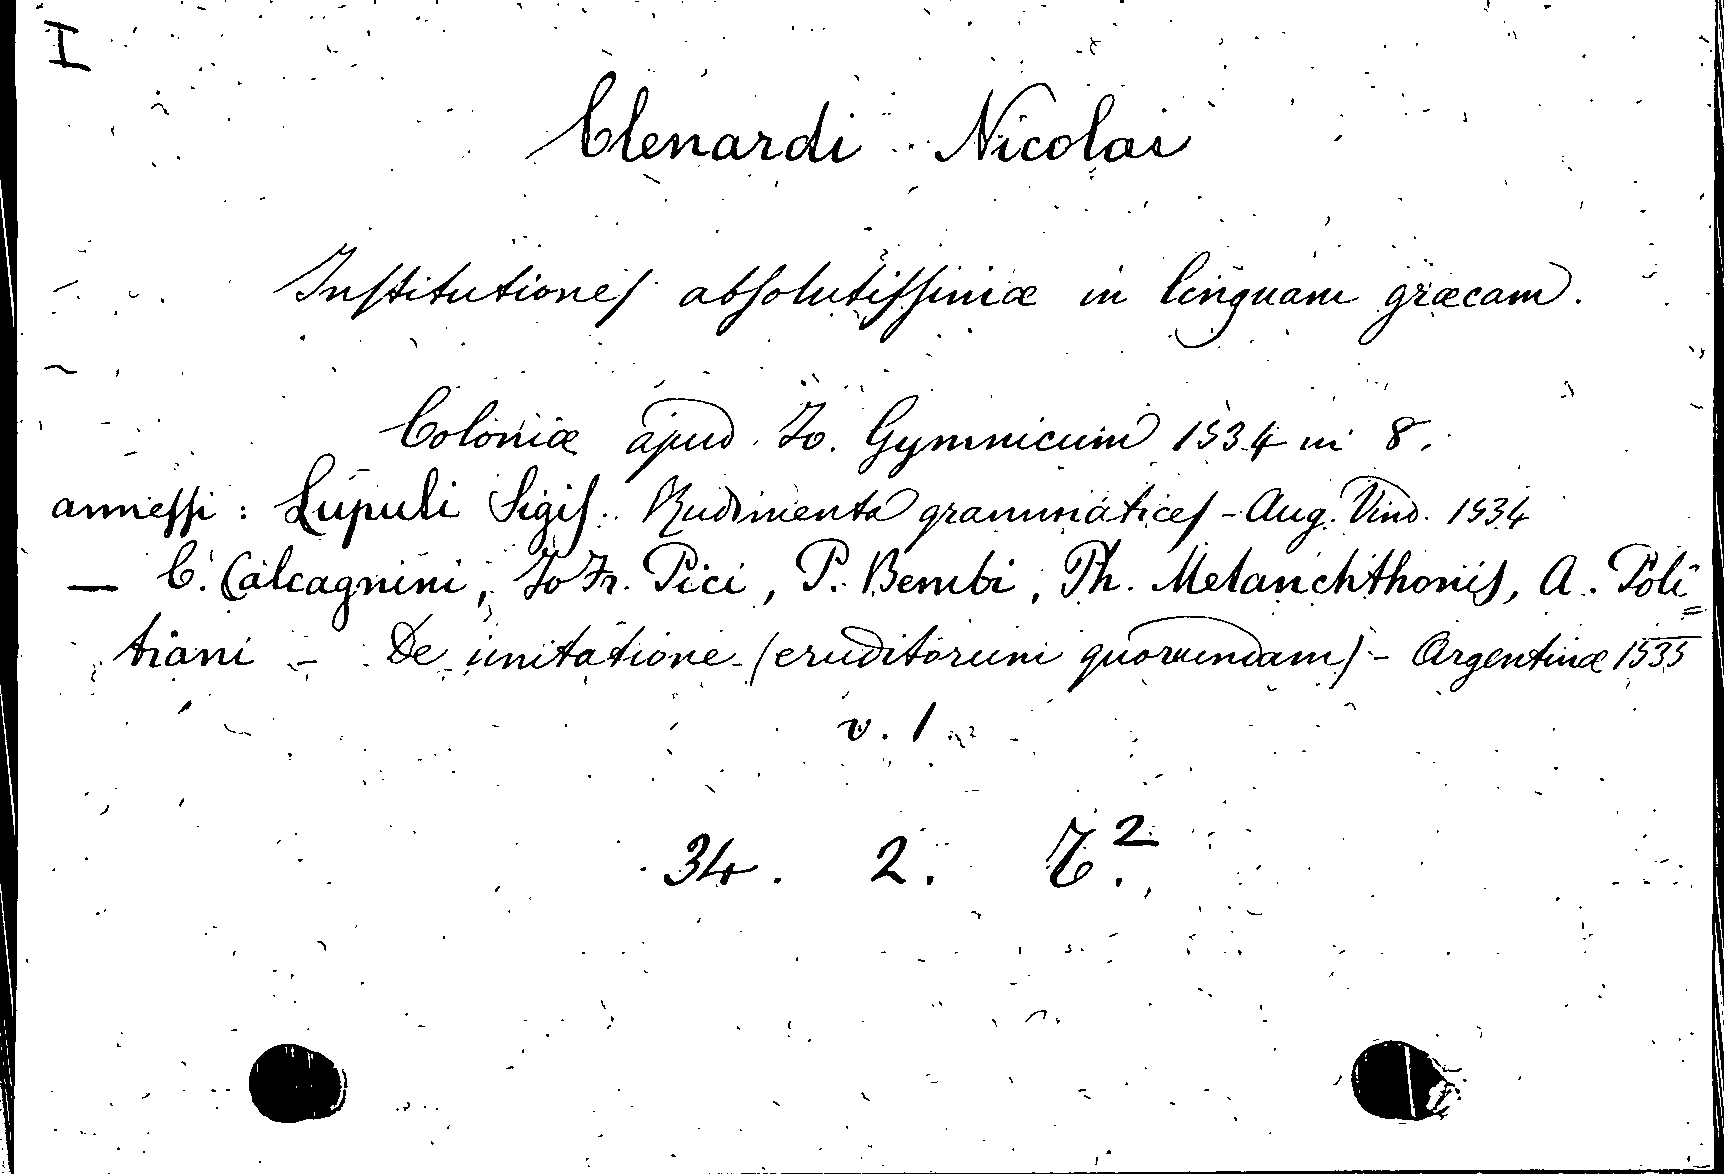 I
Clenardi Nicolai
Institutiones absolutissimæ in linguam græcam.
Coloniæ apud Jo. Gymnicum 1534 in 8.
annessi : Lupuli Sigis. Rudimenta grammatices - Aug. Vind. 1534
— C. Calcagnini, Jo Fr. Pici, P. Bembi, Ph. Melanchthonis, A. Poli=
tiani - De imitatione (eruditorum quorumdam) - Argentinæ 1535
v. 1
34. 2. 2.